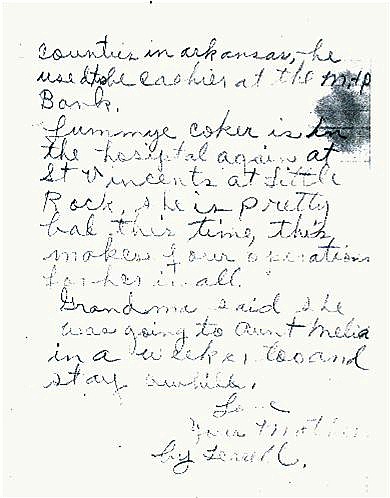 counties in arkansas, he
used to be cashier at the M+P
Bank.
Lummye Coker is in
the hospital again at
St Vincents at Little
Rock, she is pretty
bad this time, this
makes four operations
for her in all.
Grandma said she
was going to aunt Melia
in a week or too and
stay awhile.
Love
Your Mother
by